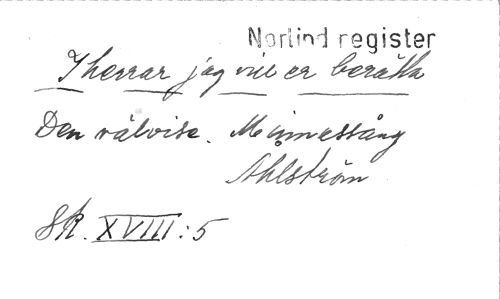 Norlind register
I herrar jag vill er berätta
Den välvise. Minnessång
Åhlström
Sk. XVIII:5